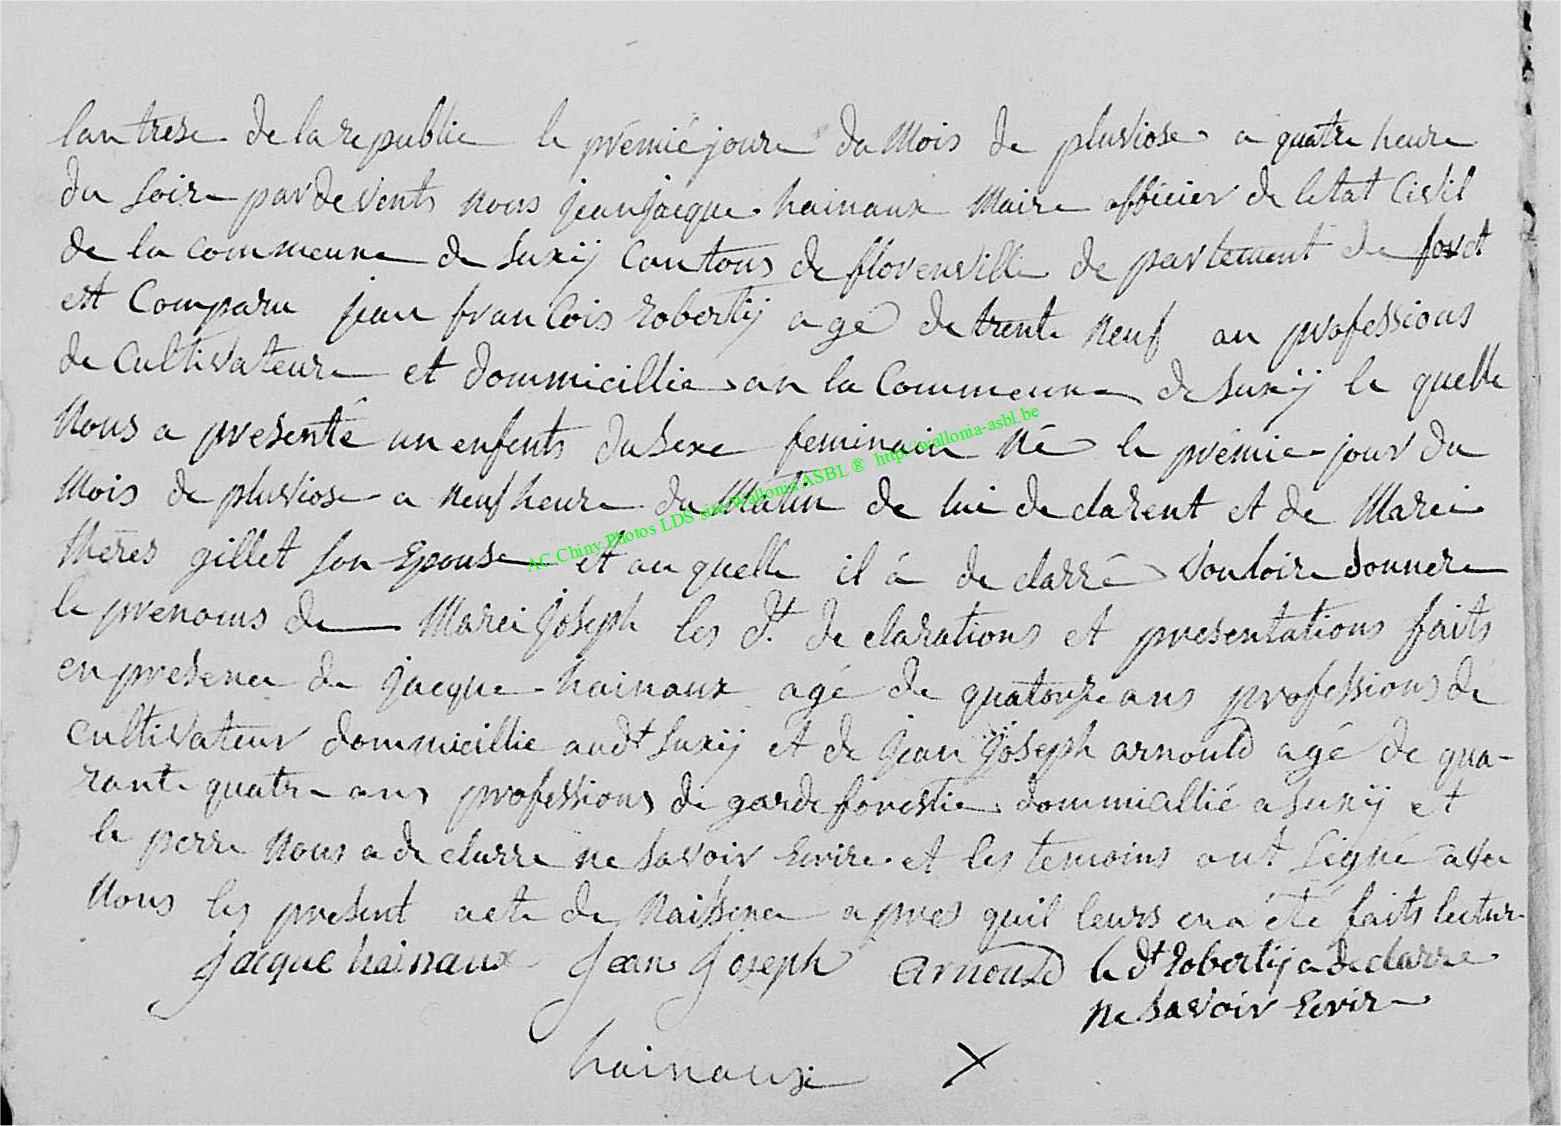 lan trese de la republic le premié joure du Mois de pluviose a quatre heure
du soire pardevents nous jean jacque hainaux Maire officier de letat Civil
de la commeune de Suxÿ Cantons de florenville de partement de foret
est Comparu jean francois robertÿ agé de trente neuf an professions
de Cultivateure et dommicillie an la Commeune de Suxÿ le quelle
Nous a presenté un enfents du sexe feminain né le premie jour du
Mois de pluviose a neuf heure du Matin de lui declarent et de Marei
theres gillet son Epouse et au quelle il á de clarré vouloire donnere
le prenoms de Marei joseph les dt. de clarations et presentations faits
en presence de jacque hainaux agé de quatorze ans professions de
cultivateur dommicillie audt Suxÿ et de jean joseph arnould agé de qua-
rante quatre ans professions de garde forestie dommicillié a Suxÿ et
le perre Nous a de clarre ne savoir Ecrire et les temoins ont signé avec
Nous les present acte de Naissence apres quil leurs en a été faits lecture
Jacque hainaux Jean Joseph Arnould le dt robertÿ a de clarre
ne savoir Ecrire
hainaux X
AC Chiny Photos LDS sur Wallonia ASBL ® http://wallonia-asbl.be